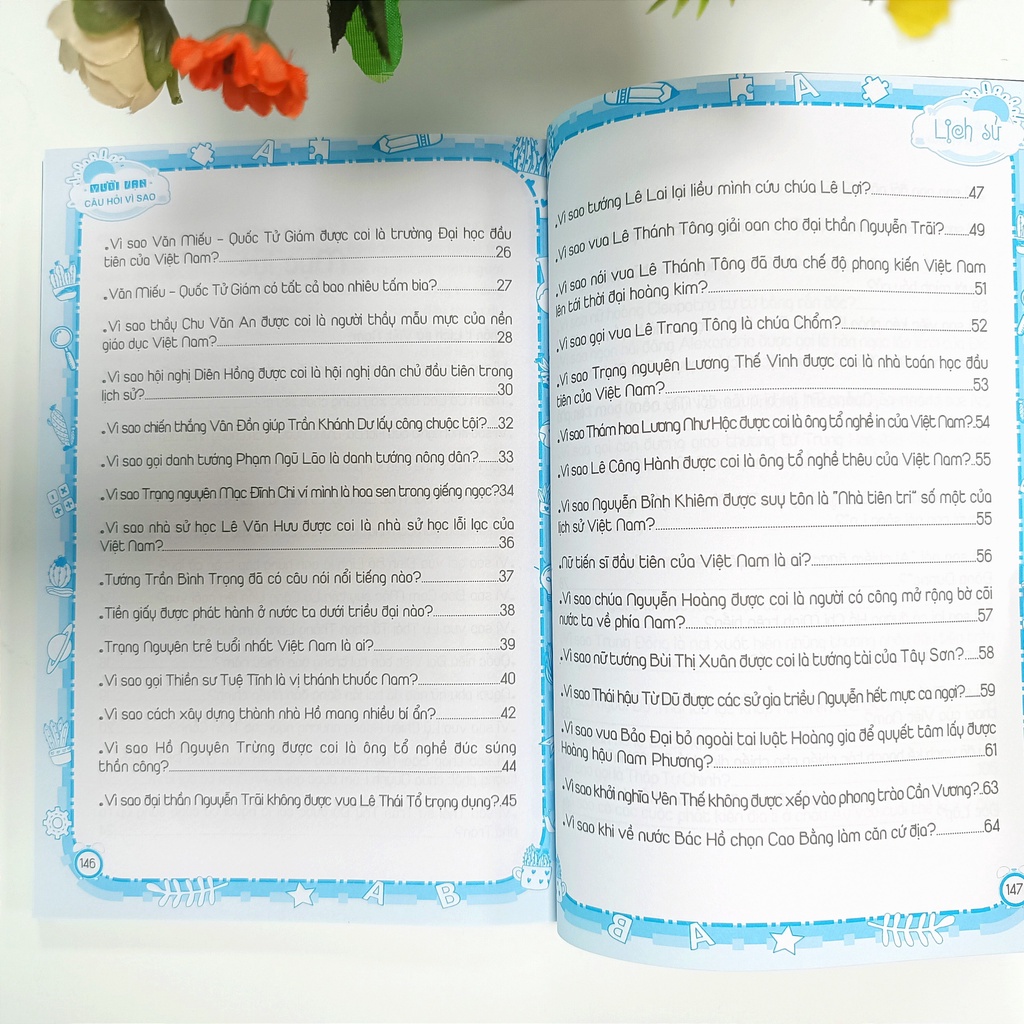 MƯỜI VẠN
CÂU HỎI VÌ SAO
.Vì sao Văn Miếu – Quốc Tử Giám được coi là trường Đại học đầu
tiên của Việt Nam?....................26
.Văn Miếu – Quốc Tử Giám có tất cả bao nhiêu tấm bia?....................27
.Vì sao thầy Chu Văn An được coi là người thầy mẫu mực của nền
giáo dục Việt Nam?....................28
.Vì sao hội nghị Diên Hồng được coi là hội nghị dân chủ đầu tiên trong
lịch sử?....................30
.Vì sao chiến thắng Vân Đồn giúp Trần Khánh Dư lấy công chuộc tội?....32
.Vì sao gọi danh tướng Phạm Ngũ Lão là danh tướng nông dân?........33
.Vì sao Trạng nguyên Mạc Đĩnh Chi ví mình là hoa sen trong giếng ngọc?34
.Vì sao nhà sử học Lê Văn Hưu được coi là nhà sử học lỗi lạc của
Việt Nam?....................36
.Tướng Trần Bình Trọng đã có câu nói nổi tiếng nào?....................37
.Tiền giấy được phát hành ở nước ta dưới triều đại nào?....................38
.Trạng Nguyên trẻ tuổi nhất Việt Nam là ai?....................39
.Vì sao gọi Thiền sư Tuệ Tĩnh là vị thánh thuốc Nam?....................40
.Vì sao cách xây dựng thành nhà Hồ mang nhiều bí ẩn?....................42
.Vì sao Hồ Nguyên Trừng được coi là ông tổ nghề đúc súng
thần công?....................44
.Vì sao đại thần Nguyễn Trãi không được vua Lê Thái Tổ trọng dụng?.45
146
Lịch sử
.Vì sao tướng Lê Lai lại liều mình cứu chúa Lê Lợi?....................47
.Vì sao vua Lê Thánh Tông giải oan cho đại thần Nguyễn Trãi?........49
.Vì sao nói vua Lê Thánh Tông đã đưa chế độ phong kiến Việt Nam
lên tới thời đại hoàng kim?....................51
.Vì sao gọi vua Lê Trang Tông là chúa Chổm?....................52
.Vì sao Trạng nguyên Lương Thế Vinh được coi là nhà toán học đầu
tiên của Việt Nam?....................53
.Vì sao Thám hoa Lương Như Hộc được coi là ông tổ nghề in của Việt Nam?.54
.Vì sao Lê Công Hành được coi là ông tổ nghề thêu của Việt Nam?..55
.Vì sao Nguyễn Bỉnh Khiêm được suy tôn là "Nhà tiên tri" số một của
lịch sử Việt Nam?....................55
.Nữ tiến sĩ đầu tiên của Việt Nam là ai?....................56
.Vì sao chúa Nguyễn Hoàng được coi là người có công mở rộng bờ cõi
nước ta về phía Nam?....................57
.Vì sao nữ tướng Bùi Thị Xuân được coi là tướng tài của Tây Sơn?.....58
.Vì sao Thái hậu Từ Dũ được các sử gia triều Nguyễn hết mực ca ngợi?.....59
.Vì sao vua Bảo Đại bỏ ngoài tai luật Hoàng gia để quyết tâm lấy được
Hoàng hậu Nam Phương?....................61
.Vì sao khởi nghĩa Yên Thế không được xếp vào phong trào Cần Vương?.63
.Vì sao khi về nước Bác Hồ chọn Cao Bằng làm căn cứ địa?...............64
147